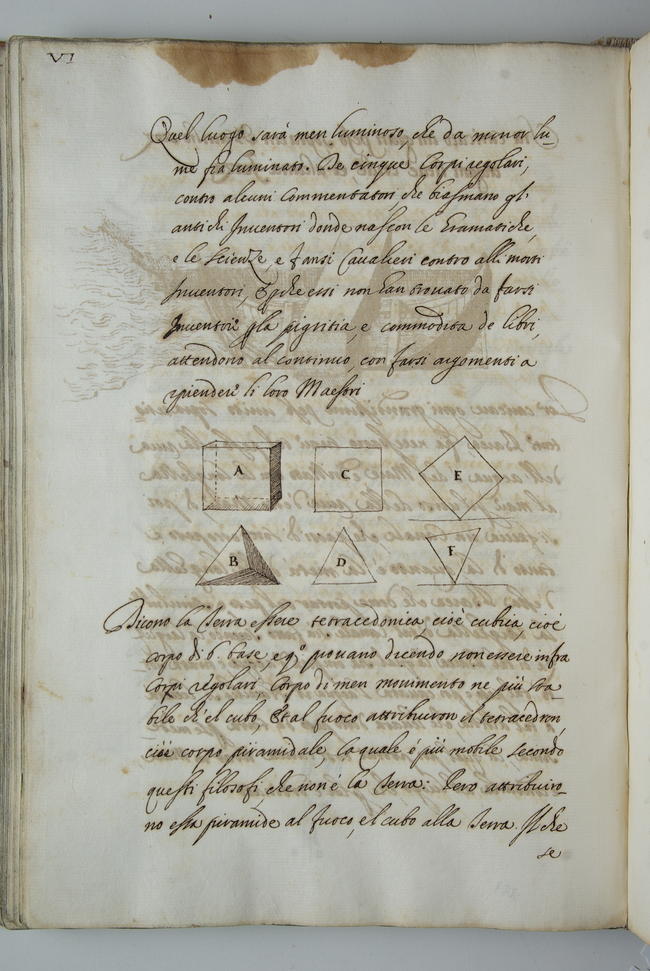 VI
Quel luogo sarà men luminoso, che da minor lu-
me fia luminato. De cinque Corpi regolari,
contro alcuni Commentatori che biasmano gl'
antichi Inventori donde nascon le Gramatiche,
e le scienze e farsi Cavalieri contro alli morti
Inventori, & pche essi non han trovato da farsi
Inventori pla pigritia, e commodita de libri,
attendono al continuo, con farsi argomenti a
riprender li loro Maestri
A C E
B D F
Dicono la Terra essere tetracedonica, cioè cubica, cioè
corpo di 6. base, e qo. provano dicendo non essere infra
Corpi regolari, Corpo di men movimento ne più sta-
bile ch'el cubo. Et al fuoco attribuiron il tetracedron,
cioè corpo piramidale, la quale è più mobile secondo
questi filosofi, che non è la Terra: Pero attribuiro-
no essa piramide al fuoco, e'l cubo alla Terra. Il che
se